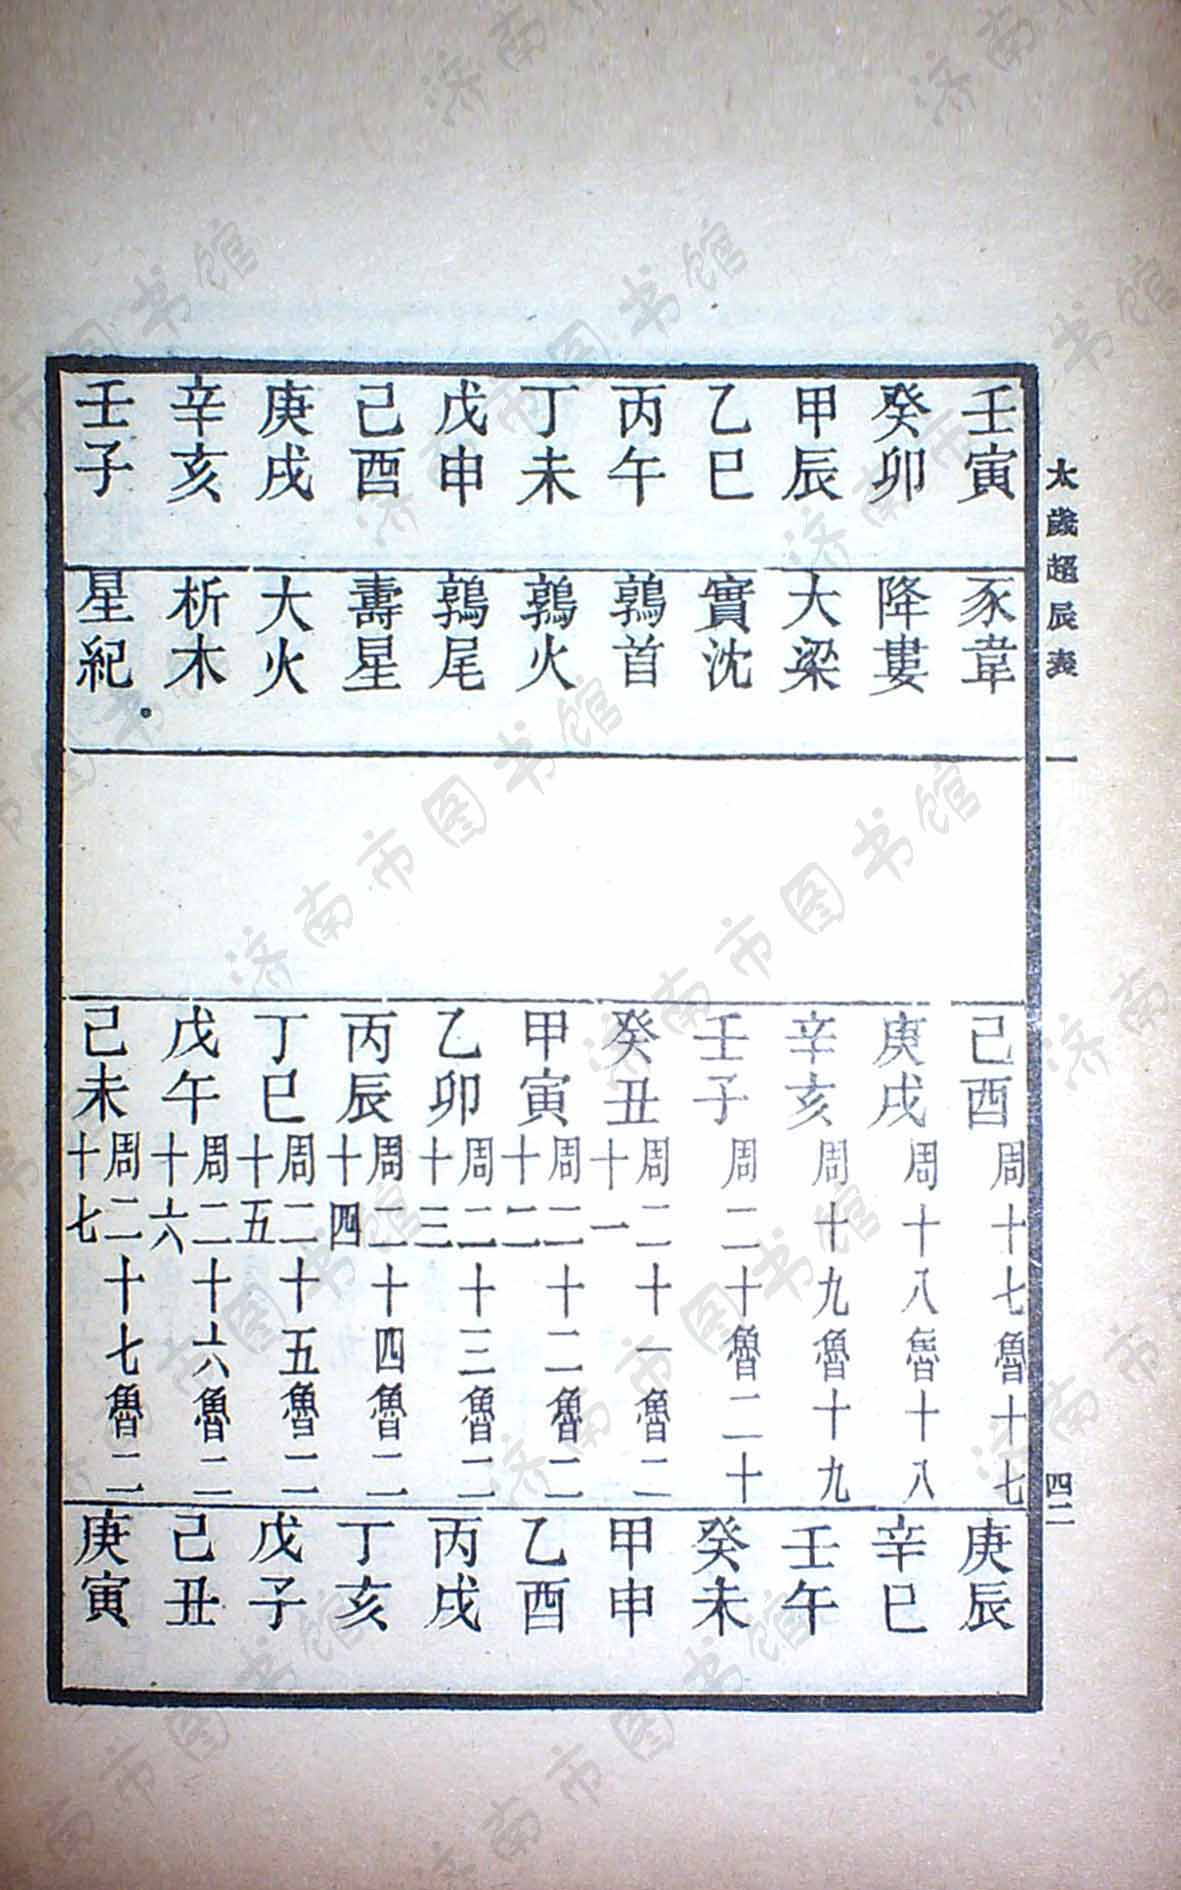 太歲超辰表 一 四二
壬寅 豕韋 己酉周十七魯十七 庚辰
癸卯 降婁 庚戌周十八魯十八 辛巳
甲辰 大梁 辛亥周十九魯十九 壬午
乙巳 實沈 壬子周二十魯二十 癸未
丙午 鶉首 癸丑周二十一魯二十一 甲申
丁未 鶉火 甲寅周二十二魯二十二 乙酉
戊申 鶉尾 乙卯周二十三魯二十三 丙戌
己酉 壽星 丙辰周二十四魯二十四 丁亥
庚戌 大火 丁巳周二十五魯二十五 戊子
辛亥 析木 戊午周二十六魯二十六 己丑
壬子 星紀 己未周二十七魯二十七 庚寅
济南市图书馆